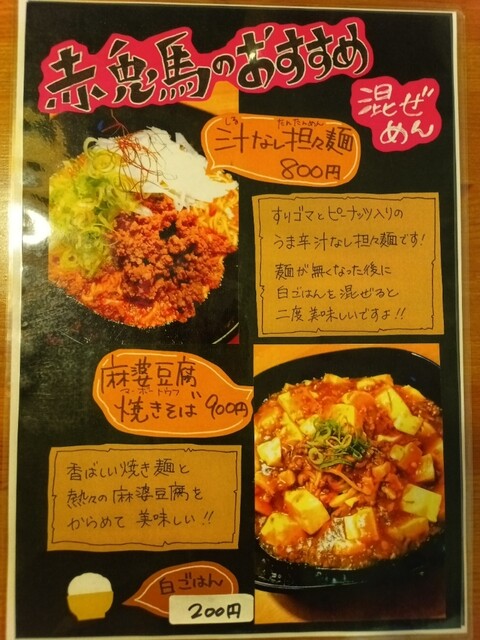 赤兎馬のおすすめ
混ぜ
めん
しる たんたんめん
汁なし担々麺
800円
すりゴマとピーナッツ入りの
うま辛汁なし担々麺です!
麺が無くなった後に
白ごはんを混ぜると
二度美味しいですよ!!
麻婆豆腐
マーボードウフ
焼きそば 900円
香ばしい焼き麺と
熱々の麻婆豆腐を
からめて美味しい!!
白ごはん
200円